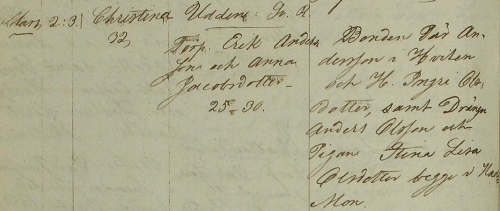 Mars 2. 3. Christina Uddens. Jo. A
32,
Torp. Erik Anders
son och Anna
Jacobsdotter
25 - 30.
Bonden Pär An-
dersson i Hviken
och H. Ingri Ols
dotter, samt Drängen
Anders Olsson och
Pigan Stina Lisa
Olsdotter begge i
Mon.